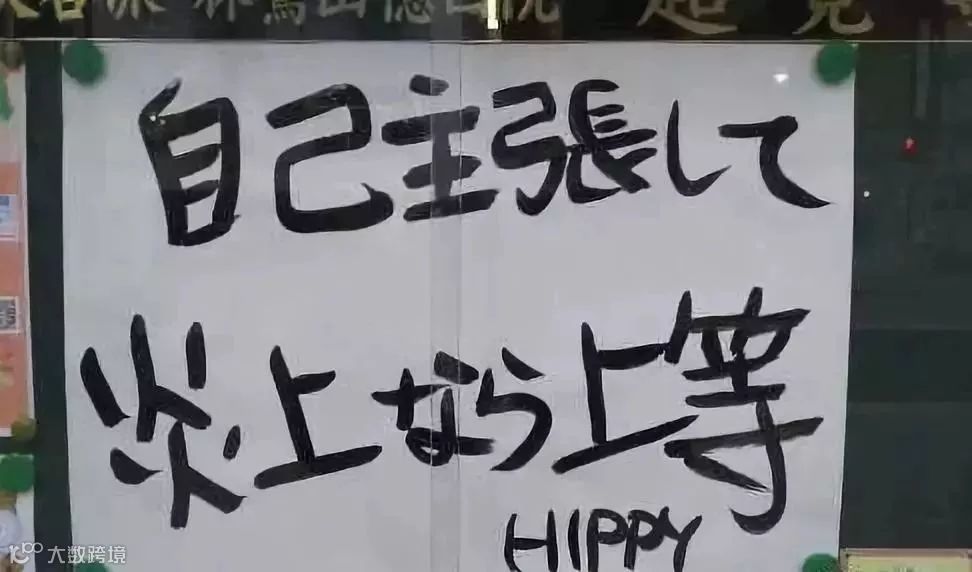 超覚
自己主張して
炎上なら上等
HIPPY
大数跨境